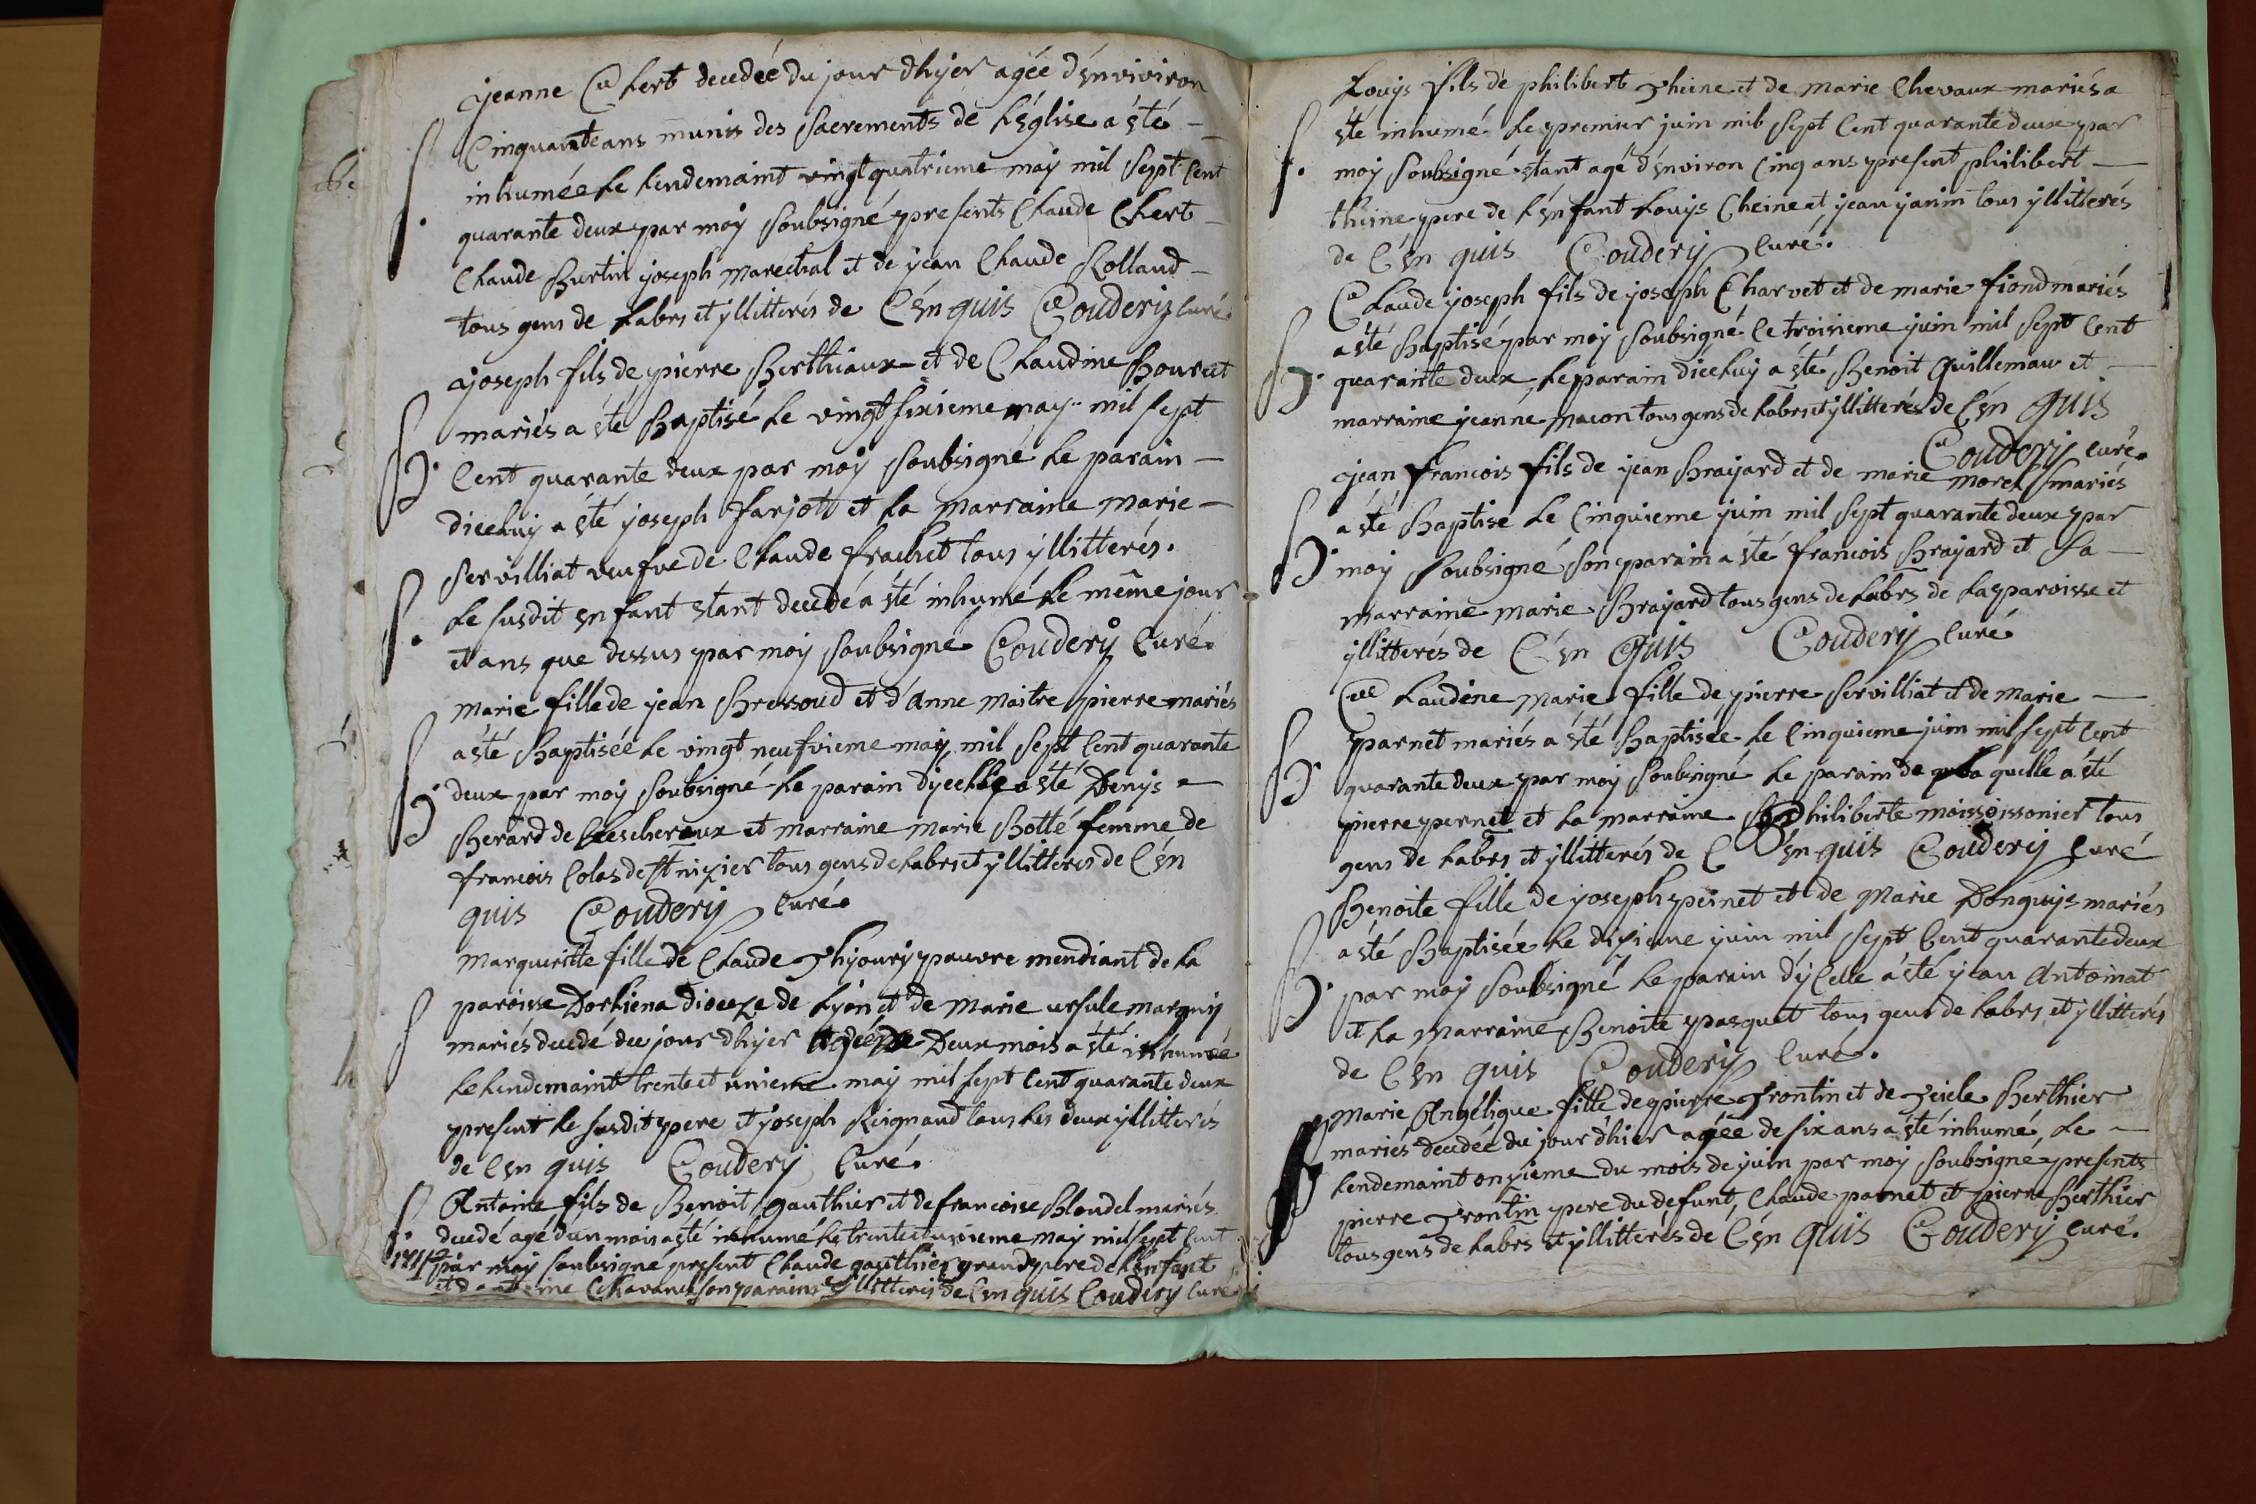 jeanne Clert decedée du jour d'hyer agée d'énviviron
Cinquante ans munis des Sacrements de L'église a été
S. inhumée Le Lendemaint vingt quatrieme may mil Sept Cent
quarante deux par moy Soubsigné presents Claude Clert
Claude Burtin joseph marechal et de jean Claude Rolland
tous gens de Labrs et yllitterés de C én quis Couderij Curé.
joseph fils de pierre Berthiaux et de Claudine Bouret
mariés a été Baptisé Le vingt sixieme may mil sept
B. Cent quarante deux par moy Soubsigné Le parain
diceluy a été joseph farjott et La marraine marie
Servilliat veufve de Claude frachet tous yllitterés.
S. Le susdit enfant étant decedé a été inhumé Le même jour
et ans que dessus par moy Soubsigné Couderij Curé.
marie fille de jean Bressoud et d'Anne maitre pierre mariés
a été Baptisée Le vingt neufvieme may mil Sept Cent quarante
B. deux par moy Soubsigné Le parain dycelle a été Denys
Berard de et marraine marie Botté femme de
francois Colas de St nizier tous gens de Labrs et yllitteres de C én
quis Couderij Curé.
Margueritte fille de Claude Thijoury pauvre mendiant de La
S paroisse Dortiena dioceze de Lyon et de Marie ursule marguy
mariés decedé du jour d'hyer agée de Deux mois a été inhumée
Le Lendemaint trente et unieme may mil sept Cent quarante deux
present Le susdit pere et joseph Reignaud tous Les deux yllitterés
de C én quis Couderij Curé.
S. Antoine fils de Benoit gauthier et de francoise Blondel mariés
decedé agé d'un mois a été inhumé Le trente et unieme may mil sept Cent
1742 par moy soubsigné present Claude gauthier grand pere de L'enfant
et d antoine Chavanel son parain yllitteris de C én quis Couderij Curé
Louys fils de philibert Theine et de marie Chevaux mariés a
été inhumé Le premier juin mil Sept Cent quarante deux par
S. moy Soubsigné étant agé d'énviron Cinq ans present philibert
theine pere de L'énfant Louys Cheine et jean janin tous yllitterés
de C én quis Couderij Curé.
Claude joseph fils de joseph Charvet et de marie fiond mariés
a été Baptisé par moy Soubsigné Le troisieme juin mil Sept Cent
B. quarante deux, Le parain diceluy a été Benoit Guillemau et
marraine jeanne macon tous gens de Labrs et yllitterés de C én quis
Couderij Curé.
jean francois fils de jean Brayard et de marie morel mariés
a été Baptise Le Cinquieme juin mil Sept quarante deux par
B. moy Soubsigné Son parain a été francois Brayard et La
marraine marie Brayard tous gens de Labrs de La paroisse et
yllitterés de C én Quis Couderij Curé
Claudéne Marie fille de pierre Servilliat et de marie
parnet mariés a été Baptisée Le Cinquieme juin mil sept Cent
B quarante deux par moy Soubsigné Le parain de La quelle a été
pierre pernet et La marraine philiberte moissoissonier tous
gens de Labrs et yllitterés de C én quis Couderij Curé
Benoite fille de joseph peinet et de Marie Donguys mariés
a été Baptisée Le dixieme juin mil Sept Cent quarante deux
B. par moy Soubsigné Le parain dy Celle a été jean Antoinat
et La Marraine Benoite pasquet tous gens de Labrs et yllitterés
de C én quis Couderij Curé.
Marie Angélique fille de pierre Trontin et de Berthier
mariés decedée du jour d'hier agée de six ans a été inhumé Le
Lendemaint onzieme du mois de juin par moy Soubsigné presents
pierre Trontin pere du defunt, Claude parnet et pierre Berthier
tous gens de Labrs et yllitterés de C én quis Couderij Curé.